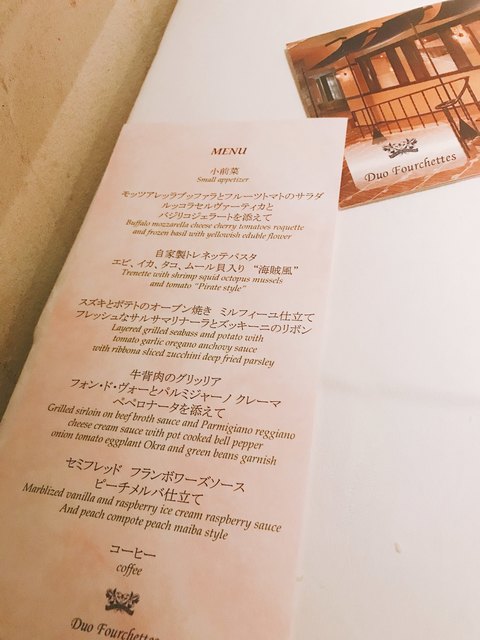 Duo Fourchettes
MENU
小前菜
Small appetizer
モッツアレッラブッファラとフルーツトマトのサラダ
ルッコラセルヴァーティカと
バジリコジェラートを添えて
Buffalo mozzarella cheese cherry tomatoes roquette
and frozen basil with yellowish eduble flower
自家製トレネッテパスタ
エビ、イカ、タコ、ムール貝入り “海賊風”
Trenette with shrimp squid octopus mussels
and tomato “Pirate style”
スズキとポテトのオーブン焼き ミルフィーユ仕立て
フレッシュなサルサマリナーラとズッキーニのリボン
Layered grilled seabass and potato with
tomato garlic oregano anchovy sauce
with ribbona sliced zucchini deep fried parsley
牛背肉のグリッリア
フォン・ド・ヴォーとパルミジャーノ クレーマ
ペペロナータを添えて
Grilled sirloin on beef broth sauce and Parmigiano reggiano
cheese cream sauce with pot cooked bell pepper
onion tomato eggplant Okra and green beans garnish
セミフレッド フランボワーズソース
ピーチメルバ仕立て
Marblized vanilla and raspberry ice cream raspberry sauce
And peach compote peach maiba style
コーヒー
coffee
Duo Fourchettes